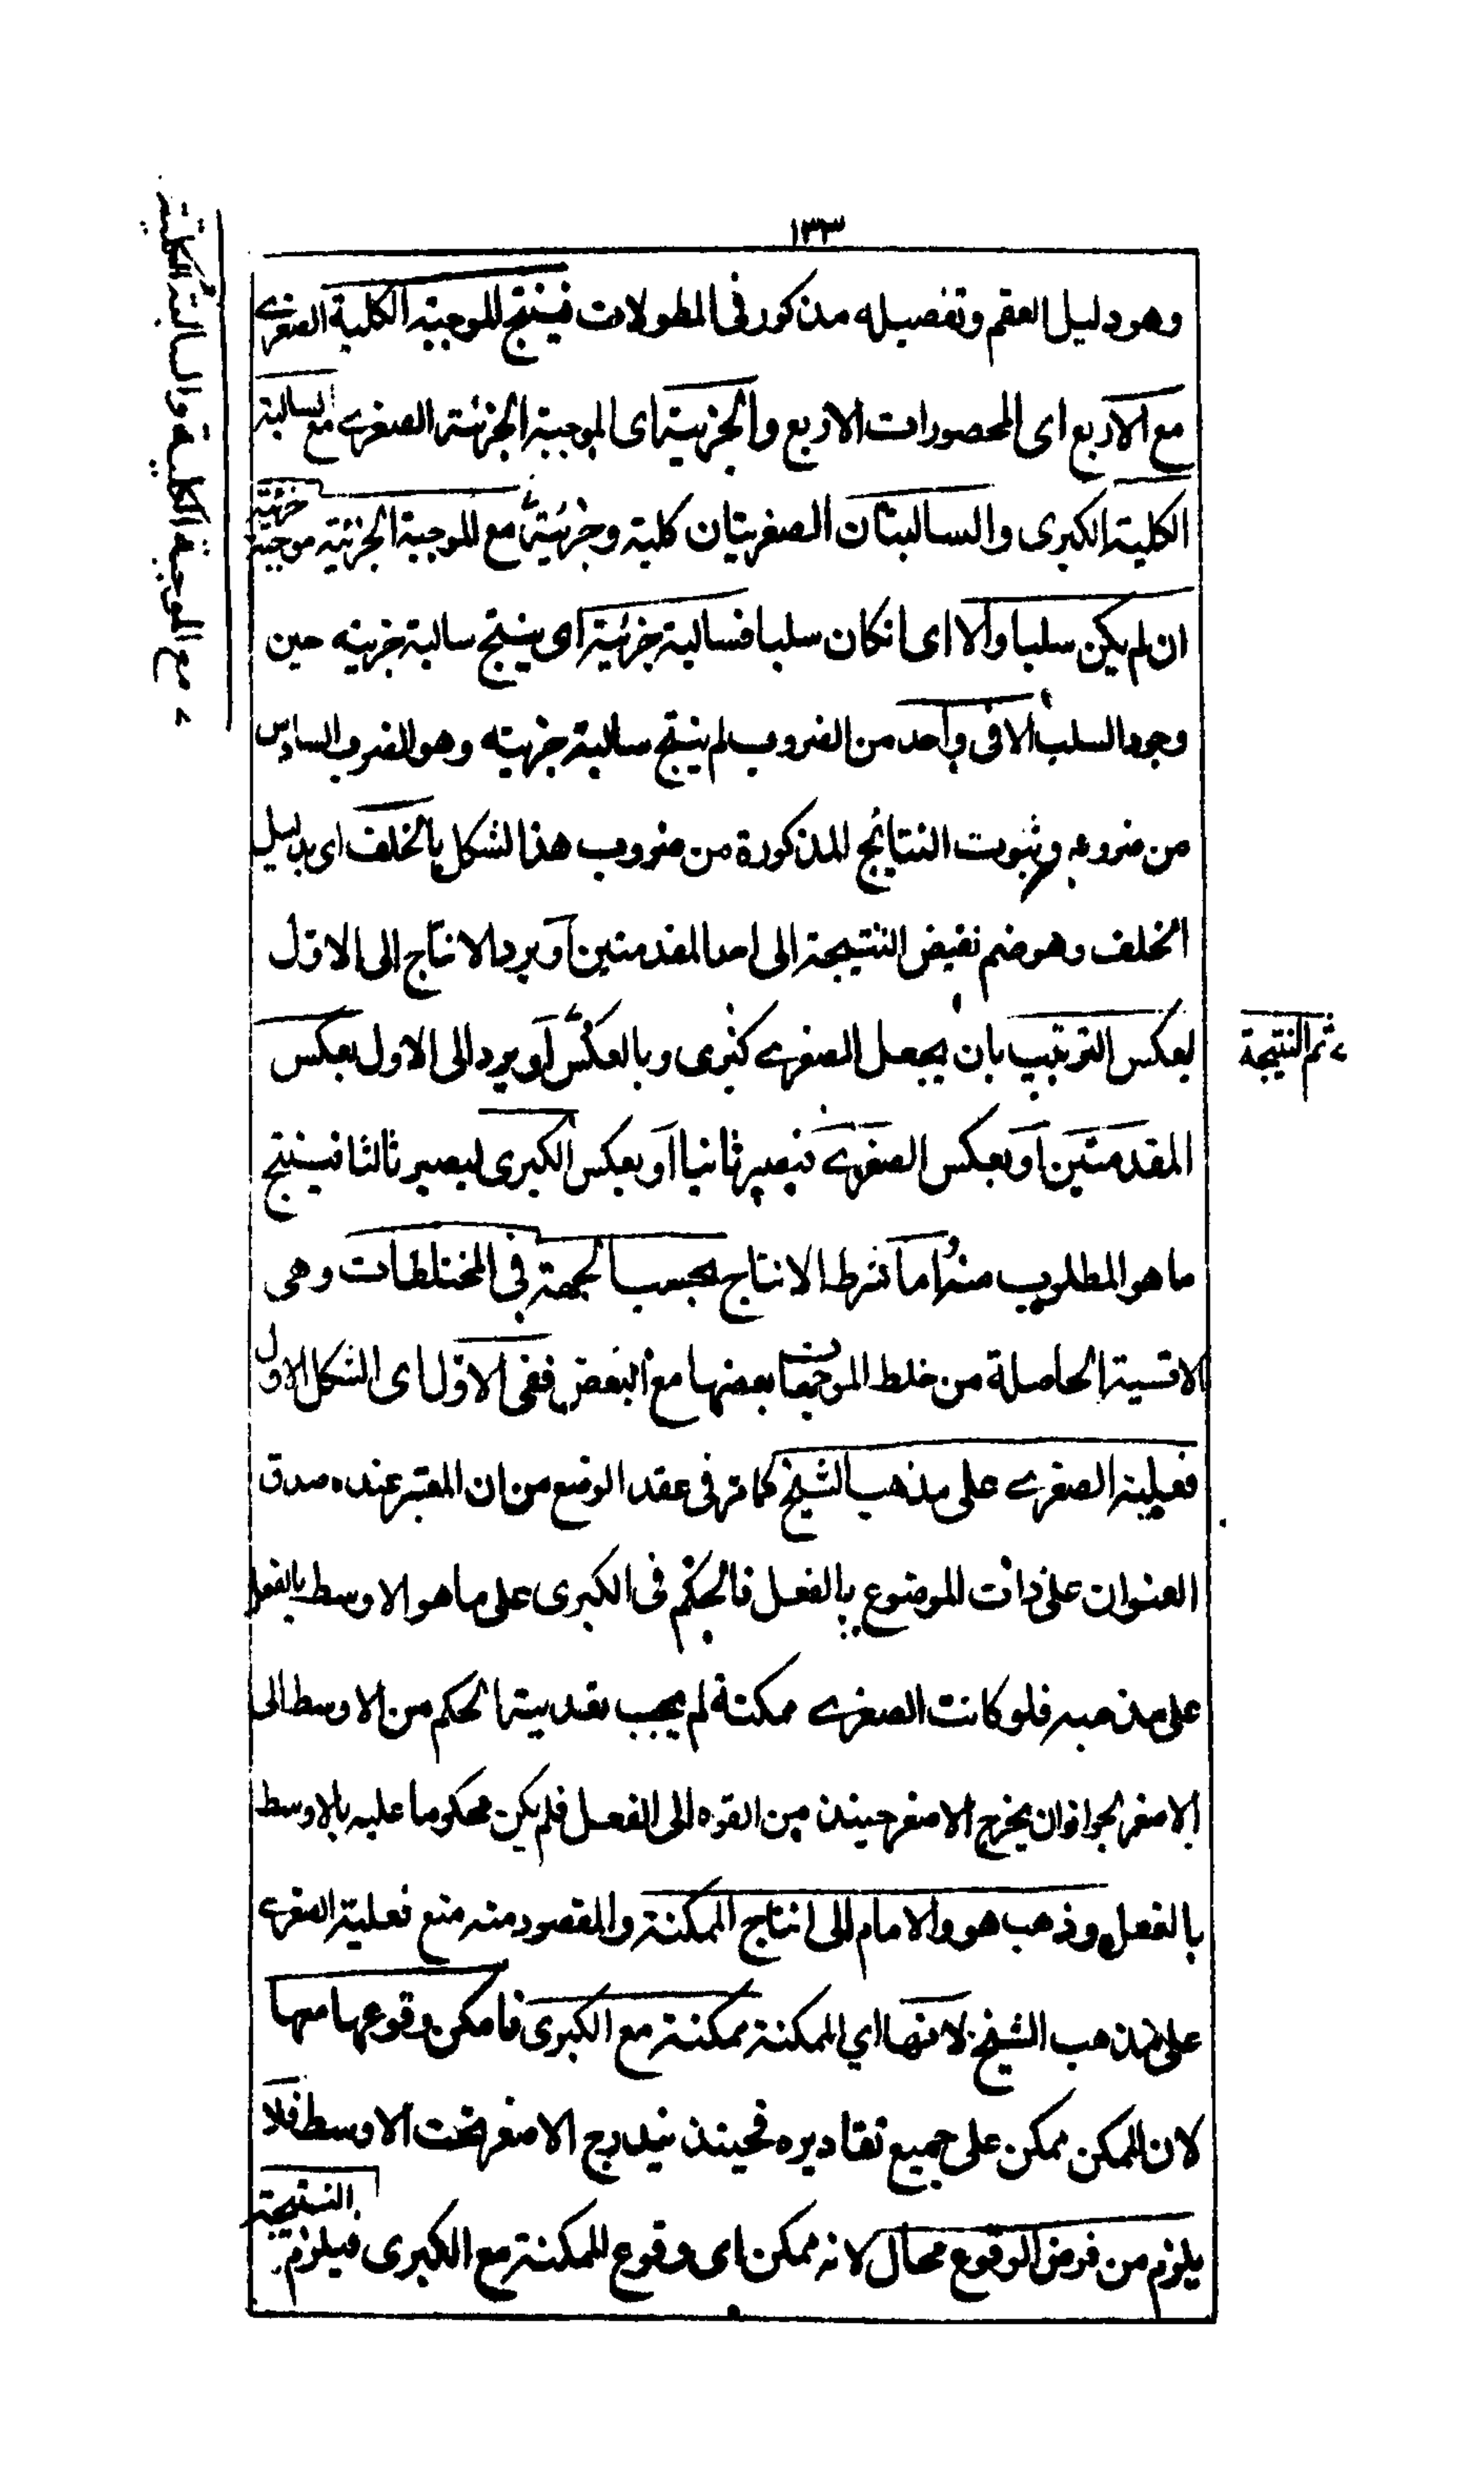 ١٣٣
وهو دليل العقم وتفصيله مذكور فى المطولات فينتج الموجبة الكلية الصغرے
مع الاربع اى المحصورات الاربع والجزئية اى الموجبة الجزئية الصغرے مع السالبة
الكلية الكبرى والسالبتان الصغريتان كلية وجزئية مع الموجبة الجزئية موجبة جزئية
ان لم يكن سلبا والا اى انكان سلبا فسالبة جزئية اى ينتج سالبة جزئية حين
وجود السلب الا فى واحد من الضروب لم ينتج سالبة جزئية وهو الضرب السادس
من ضروبه وثبوت النتائج المذكورة من ضروب هذا الشكل بالخلف اى بدليل
الخلف وهو ضم نقيض النتيجة الى احد المقدمتين او يرد الانتاج الى الاول
بعكس الترتيب بان يجعل الصغرے كبرى وبالعكس او يرد الى الاول بعكس
المقدمتين او بعكس الصغرے فيصير ثانيا او بعكس الكبرى ليصير ثالثا فينتج
ما هو المطلوب منه واما شرط الانتاج بحسب الجهة فى المختلطات وهى
الاقسية الحاصلة من خلط الموجهات بعضها مع البعض ففى الاول اى الشكل الاول
فعلية الصغرے على مذهب الشيخ كما مر فى عقد الوضع من ان المعتبر عنده صدق
العنوان على ذات الموضوع بالفعل فالحكم فى الكبرى على ما هو الاوسط بالفعل
على مذهبه فلو كانت الصغرے ممكنة لم يجب تعدية الحكم من الاوسط الى
الاصغر لجواز ان يخرج الاصغر حينئذ من القوه الى الفعل فلم يكن محكوما عليه بالاوسط
بالفعل وذهب هو والامام الى انتاج الممكنة والمقصود منه منع فعلية الصغرے
على مذهب الشيخ لانها اي الممكنة ممكنة مع الكبرى فامكن وقوعها معها
لان الممكن ممكن على جميع تقاديره فحينئذ يندرج الاصغر تحت الاوسط فلا
يلزم من فرض الوقوع محال لانه ممكن اى وقوع الممكنة مع الكبرى فيلزم النتيجة
ثم النتيجة
مع الموجبة الكلية والسالبة الكلية